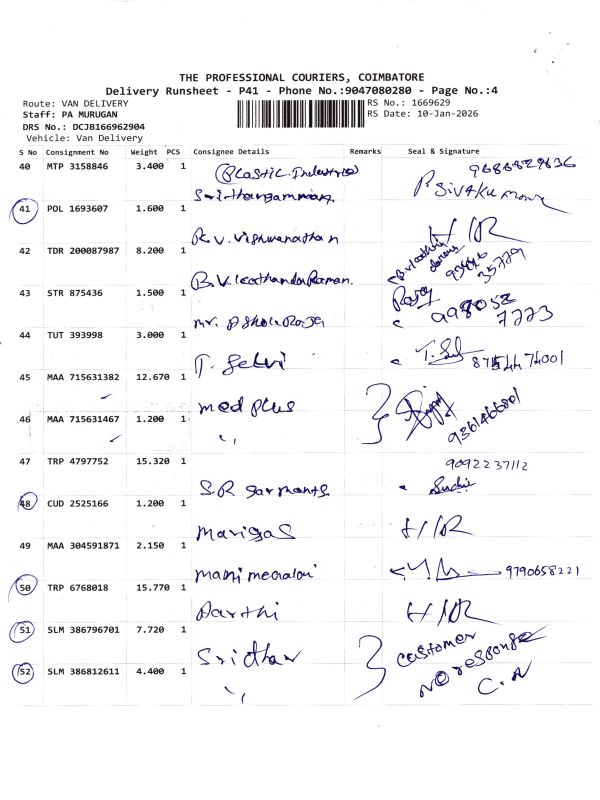 THE PROFESSIONAL COURIERS, COIMBATORE
Delivery Runsheet - P41 - Phone No.:9047080280 - Page No.:4
Route: VAN DELIVERY
RS No.: 1669629
Staff: PA MURUGAN
RS Date: 10-Jan-2026
DRS No.: DCJB166962904
Vehicle: Van Delivery
S No Consignment No Weight PCS Consignee Details Remarks Seal & Signature
40 MTP 3158846 3.400 1 Plastic Industries
P Sivakumar
41 POL 1693607 1.600 1
R.V. Vishwanathan H/R
42 TDR 200087987 8.200 1
43 STR 875436 1.500 1
Mr. Ashok Raja 998052 7773
44 TUT 393998 3.000 1
T. Selvi T. Sel 8754474001
45 MAA 715631382 12.670 1
med plus
46 MAA 715631467 1.200 1
9361466801
47 TRP 4797752 15.320 1 9092237112
S.R garments
48 CUD 2525166 1.200 1
Marigas H/R
49 MAA 304591871 2.150 1
9790658221
50 TRP 6768018 15.770 1
Aarthi H/R
51 SLM 386796701 7.720 1
Sridhar customer
52 SLM 386812611 4.400 1 NO response
C.N